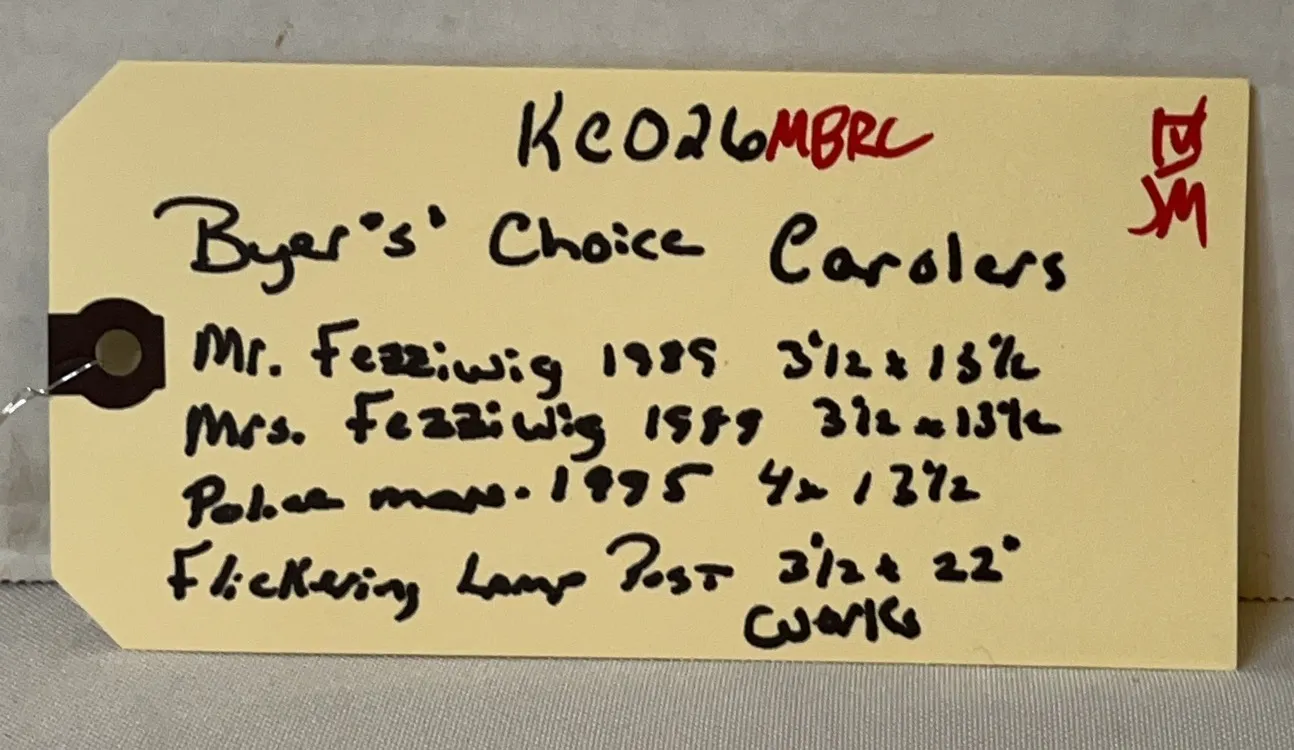 KC026MBRC
JM
Byer's' Choice Carolers
Mr. Fezziwig 1989 3 1/2 x 13 1/2
Mrs. Fezziwig 1989 3 1/2 x 13 1/2
Police man. 1995 4 x 13 1/2
Flickering Lamp Post 3 1/2 x 22"
works